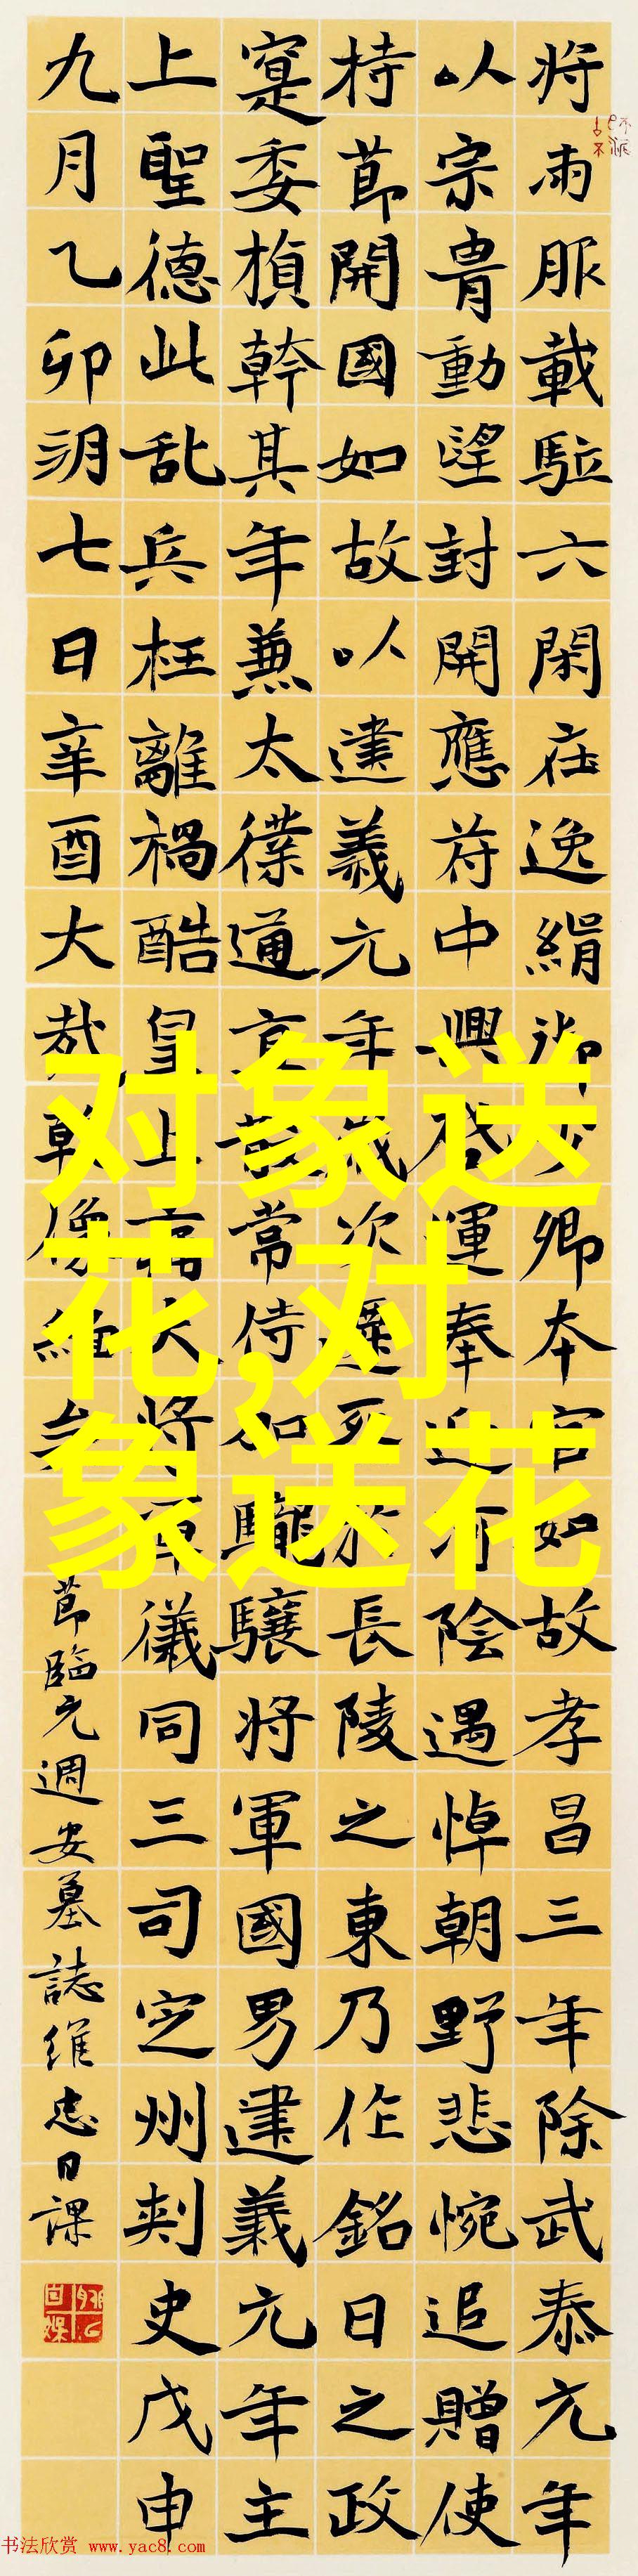 将雨服載駈六閑在逸絹御少卿本官如故孝昌三年除武泰元年
以宗胄動望封開應苻中興啓運奉迎河陰遇悼朝野悲惋追贈使
持節開國如故以建義元年歲次遷死於長陵之東乃作銘曰之政
寔委楨幹其年兼太僕通直散常侍加驡驤将軍國男建義元年主
上聖德此乱兵枉離禍酷皇上大将軍儀同三司定州刺史戊申
九月乙卯朔七日辛酉大哉乾像維
節臨元週安墓誌維忠日課
对象送
花,对
象送花
书法欣赏 www.yac8.com